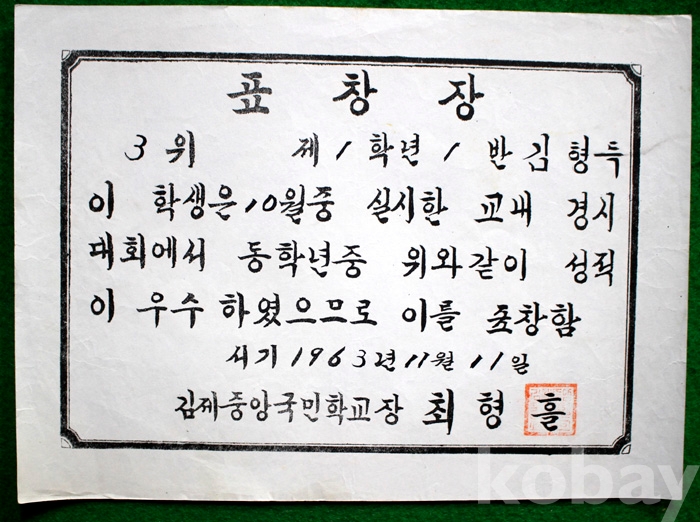 표창장
3위 제1학년1반김형득
이 학생은10월중 실시한 교내 경시
대회에서 동학년중 위와같이 성적
이 우수하였으므로 이를 표창함
서기1963년11월11일
김제중앙국민학교장 최형흘
kobay